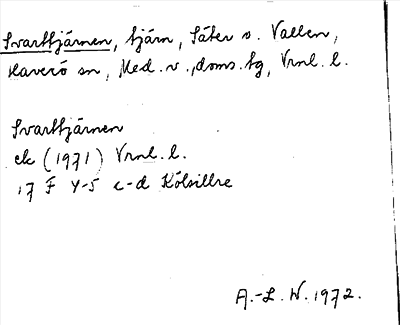 Svarttjärnen, tjärn, Säter o. Vallen,
Haverö sn, Med. v., doms. tg, Vrnl. l.
Svarttjärnen
ek (1971) Vrnl. l.
17 F 4-5 c-d Kölsillre
A.-L. W. 1972.